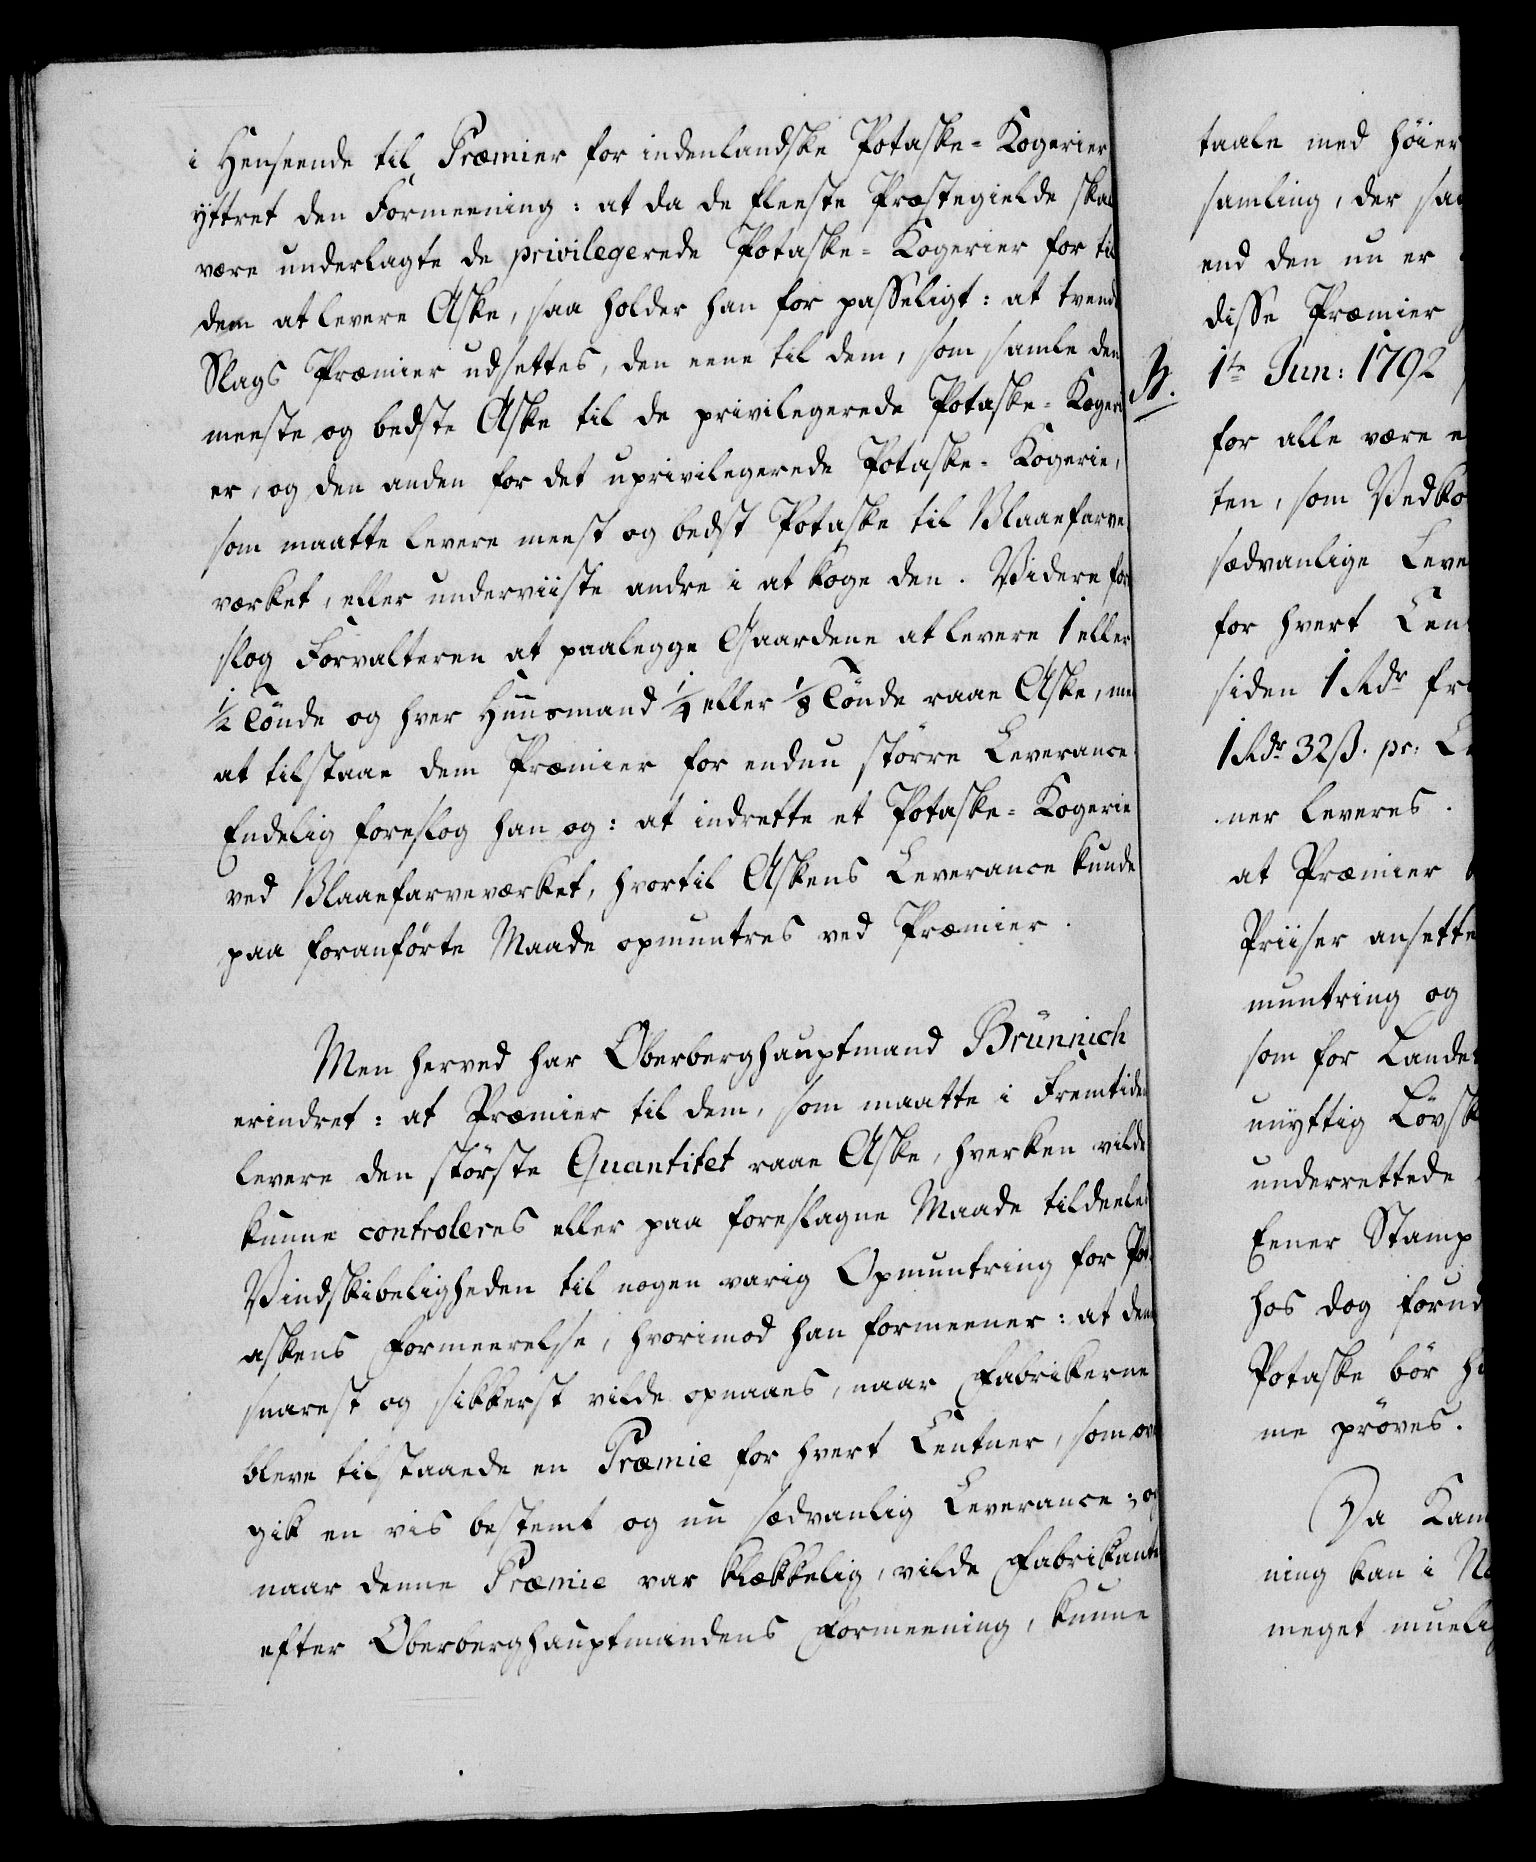 i Henseende til Præmier for indenlandske Potaske-Kogerier
yttret den Formeening: at da de fleeste Præstegielde skal
være underlagte de privilegerede Potaske-Kogerier for til
dem at levere Aske, saa holder han for passeligt: at tvende
Slags Præmier udsettes, den eene til dem, som samle den
meeste og bedste Aske til de privilegerede Potaske-Kogeri
er, og den anden for det uprivilegerede Potaske-Kogerie,
som maatte levere meest og bedst Potaske til Blaaefarve
værket, eller underviiste andre i at koge den. Videre for
slog Forvalteren at paalegge Gaardene at levere 1 eller
1/2 Tönde og hver Huusmand 1/4 eller 1/8 Tönde raae Aske, men
at tilstaae dem Præmier for endnu större Leverance.
Endelig foreslog han og: at indrette et Potaske-Kogerie
ved Blaaefarveværket, hvortil Askens Leverance kunde
paa foranförte Maade opmuntres ved Præmier.
Men herved har Oberberghauptmand Brünnich
erindret: at Præmier til dem, som maatte i Fremtiden
levere den störste Quantitet raae Aske, hverken vilde
kunne controleres eller paa foreslagne Maade tildeele
Vindskibeligheden til nogen varig Opmuntring for Pot
askens Formeerelse, hvorimod han formeener: at den
snarest og sikkerst vilde opnaaes, naar Fabrikerne
bleve tilstaaede en Præmie for hvert Centner, som over
gik en vis bestemt og nu sædvanlig Leverance; og
naar denne Præmie var klækkelig, vilde Fabrikante
efter Oberberghauptmandens Formeening, kunne
taale med höier
samling, der saa
end den nu er
disse Præmier
1te Jun: 1792
for alle være e
ten, som Vedko
sædvanlige Leve
for hvert Cent
siden 1 Rdr fra
1 Rdr 32 ß. pr: Ce
ner leveres.
at Præmier
Priiser ansette
muntring og
som for Landet
unyttig Lövsk
underrettede
Eener Stamp
hos dog forud
Potaske bör hi
me pröves.
Da Kam
ning kan i No
meget muelig